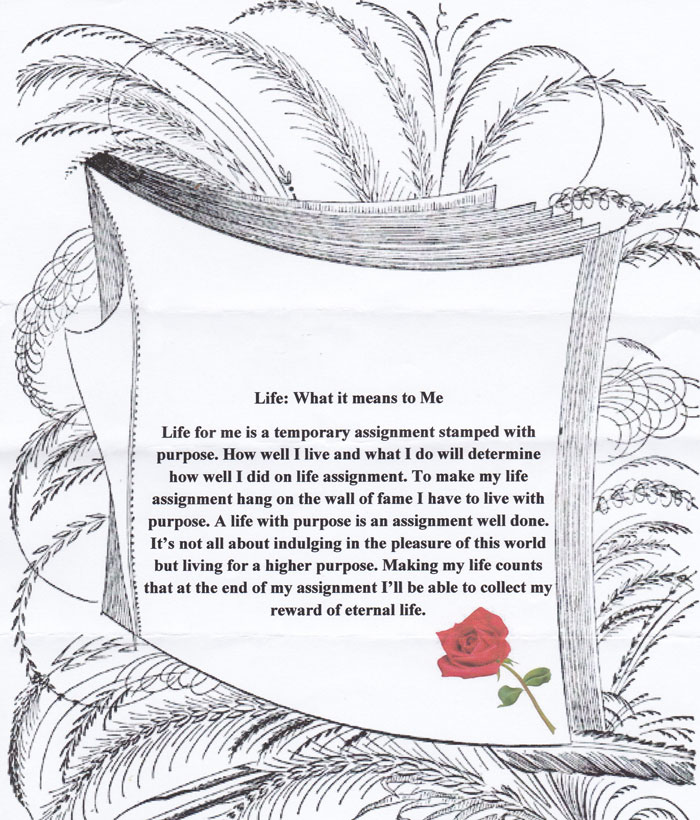 Life: What it means to Me
Life for me is a temporary assignment stamped with
purpose. How well I live and what I do will determine
how well I did on life assignment. To make my life
assignment hang on the wall of fame I have to live with
purpose. A life with purpose is an assignment well done.
It’s not all about indulging in the pleasure of this world
but living for a higher purpose. Making my life counts
that at the end of my assignment I’ll be able to collect my
reward of eternal life.